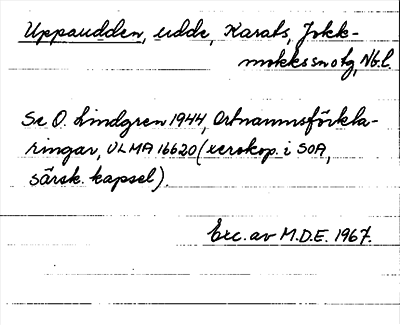 Uppaudden, udde, Karats, Jokk-
mokks sn o tg, Nb.l.
Se O. Lindgren 1944, Ortnamnsförkla-
ringar, ULMA 16620 (xerokop. i SOA,
särsk. kapsel).
Exc. av M.D.E. 1967.